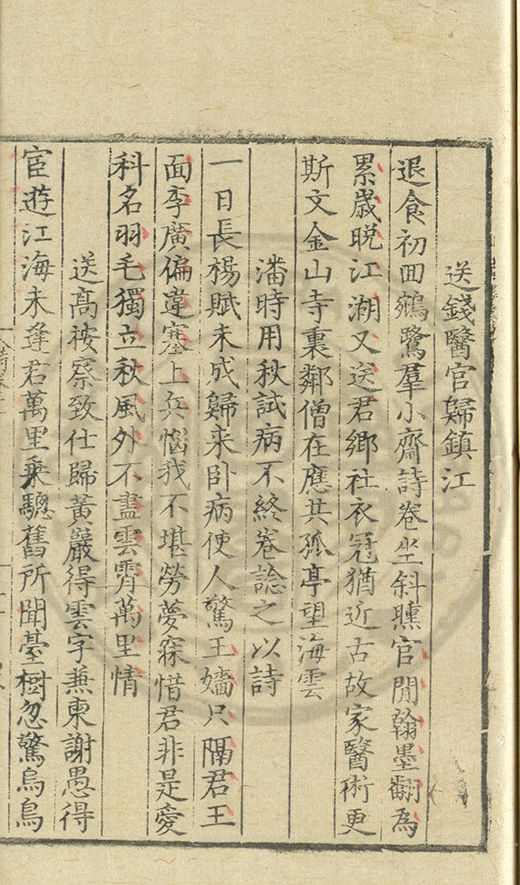 送錢醫官歸鎮江
退食初回鵷鷺羣小齋詩卷坐斜曛官閒翰墨翻為
累歲晚江湖又送君鄉社衣冠猶近古故家醫術更
斯文金山寺裏鄰僧在應共孤亭望海雲
潘時用秋試病不終卷諗之以詩
一日長楊賦未成歸来卧病使人驚王嬙只隔君王
面李廣偏違塞上兵惱我不堪勞夢寐惜君非是愛
科名羽毛獨立秋風外不盡雲霄萬里情
送髙按察致仕歸黃巖得雲字兼柬謝愚得
宦遊江海未逢君萬里乗驄舊所聞臺樹忽驚烏鳥